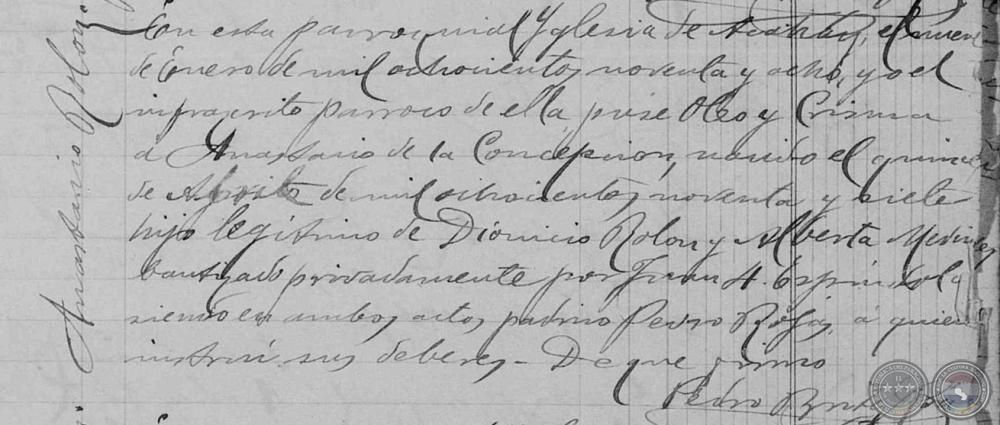 Anastacio Rolon.
En esta parroquial Yglesia de el nueve
de Enero de mil ochocientos noventa y ocho, yo el
infrascrito parroco de ella, puse Oleo y Crisma
a Anastacio de la Concepcion, nacido el quince
de Abril de mil ochocientos noventa y siete
hijo legitimo de Dionicio Rolon y Alberta Medina,
bautizado privadamente por Juan A. Espindola
siendo en ambos actos padrino Pedro Rojas, á quien
instruí sus deberes - De que firmo
Pedro